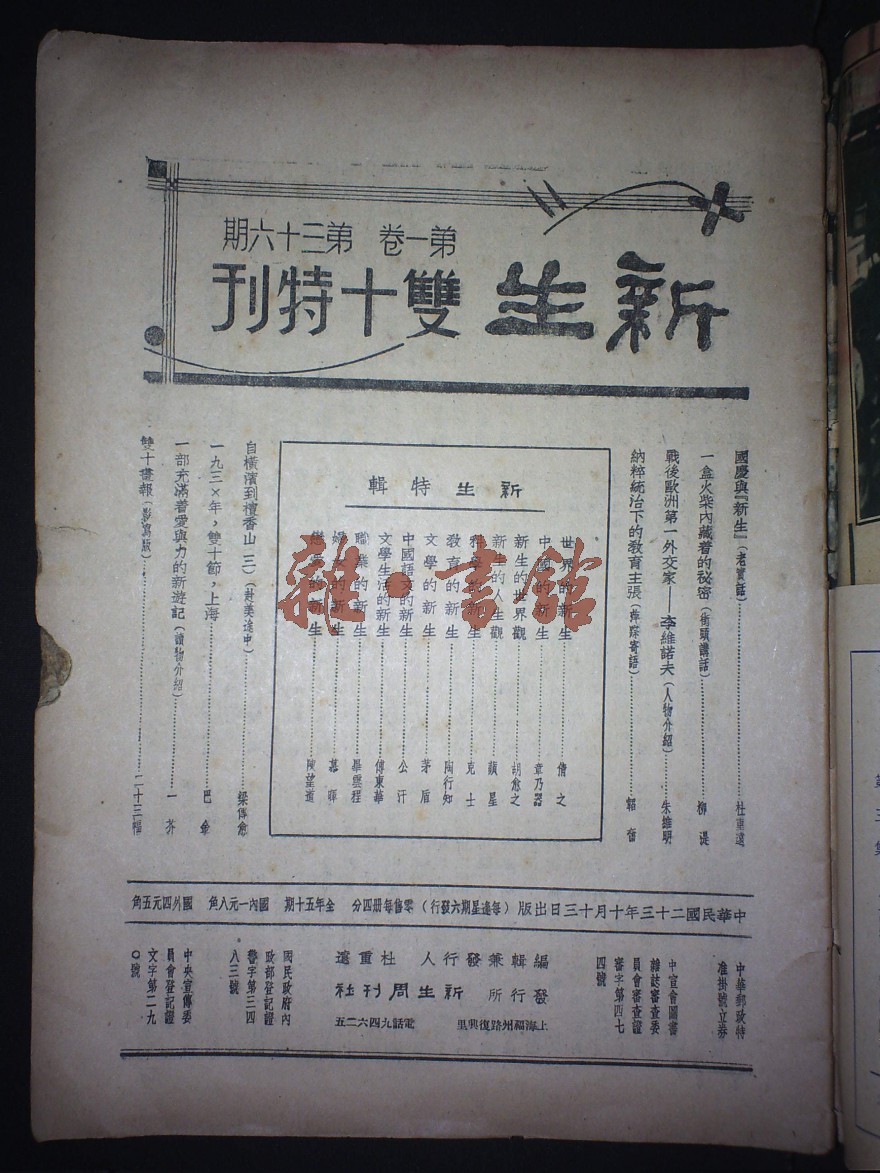 第一卷 第三十六期
新生 雙十特刊
國慶與『新生』(老實話)……杜重遠
一盒火柴內藏着的秘密(街頭講話)……柳湜
戰後歐洲第一外交家——李維諾夫(人物介紹)……朱維明
納粹統治下的敎育主張(萍踪寄語)……韜奮
新生特輯
世界的新生……倩之
中國的新生……章乃器
新生的世界觀……胡愈之
新生的人生觀……蘋星
科學的新生……克士
敎育的新生……陶行知
文學的新生……茅盾
中國語文的新生……公汗
文學生活的新生……傅東華
職業的新生……畢雲程
婦女的新生……慕暉
戀愛的新生……陳望道
自橫濱到檀香山(三)(赴美途中)……梁傳愈
一九三×年,雙十節,上海……巴金
一部充滿着愛與力的新遊記(讀物介紹)……一芥
雙十畫報(影寫版)……二十三幅
中華民國二十三年十月十三日出版(每逢星期六發行)零售每册四分 全年五十期 國內一元八角 國外四元五角
中華郵政特
准掛號立券
中宣會圖書
雜誌審查委
員會審查證
審字第四七
四號
編輯兼發行人 杜重遠
發行所 新生周刊社
上海福州路復興里 電話九四六二五
國民政府內
政部登記證
警字第三四
八三號
中央宣傳委
員會登記證
文字第二九
〇號
雜·書館